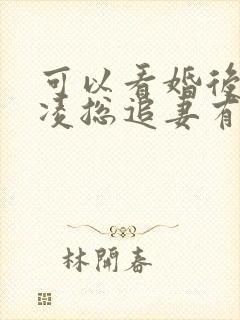 可以看婚後
凌总追妻有
林開春